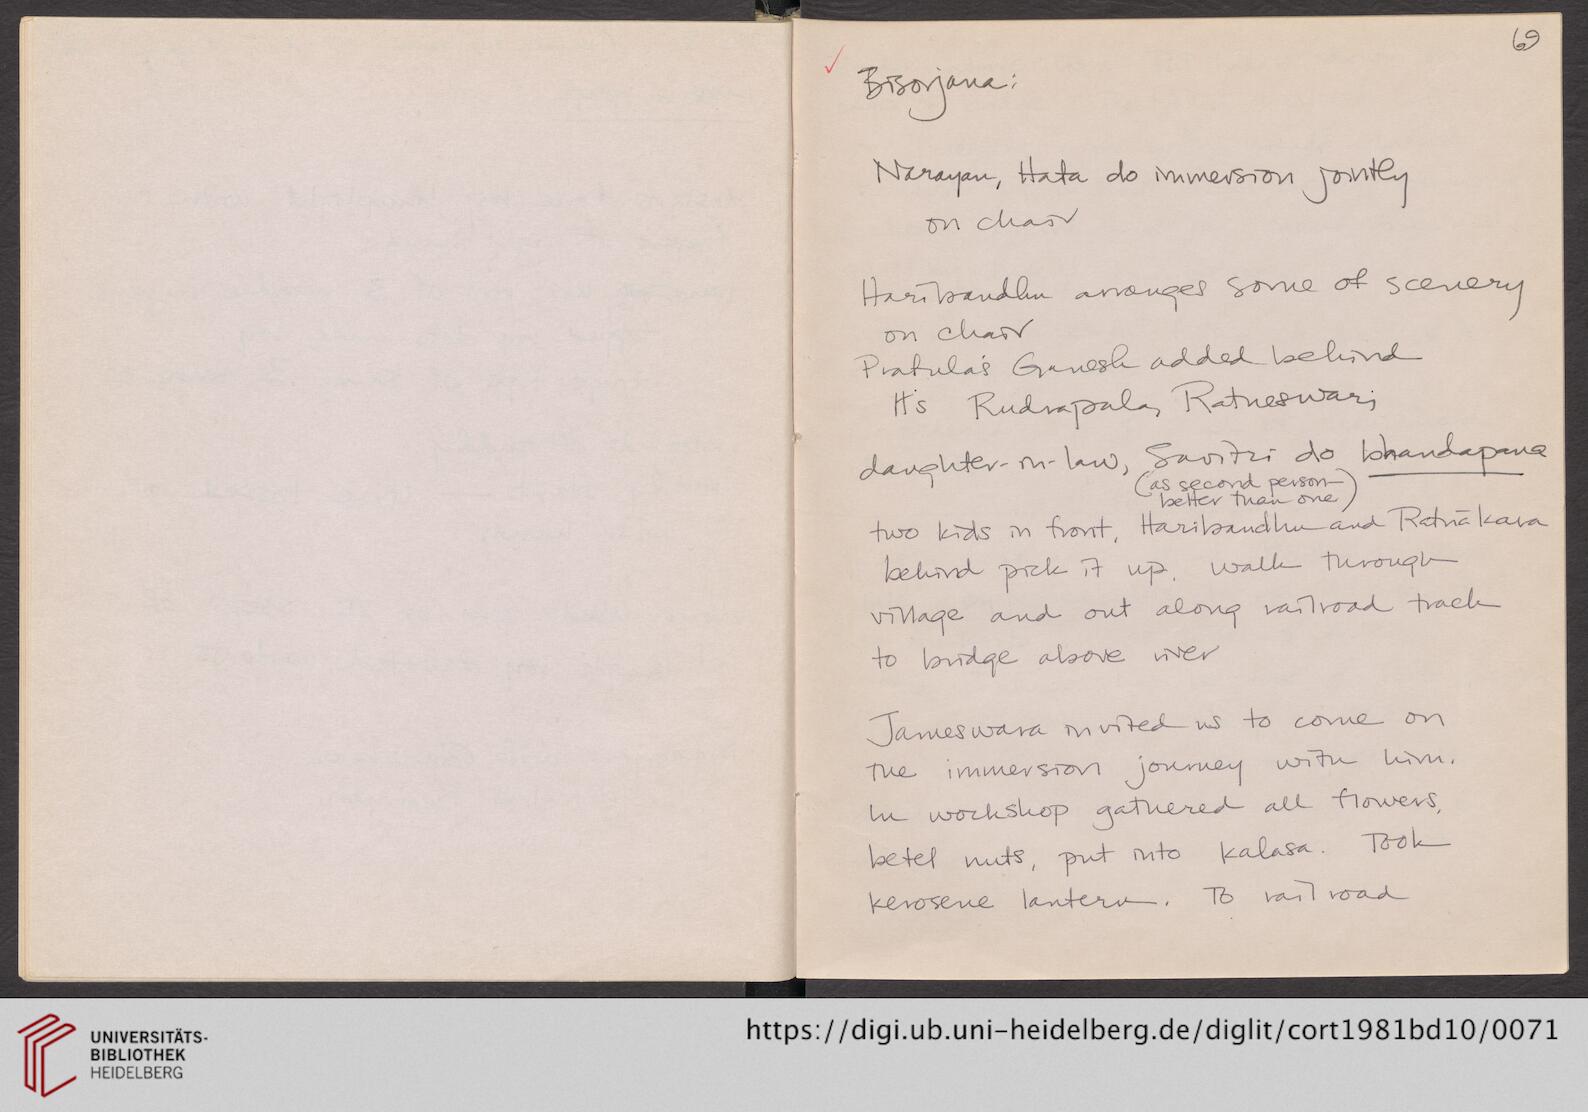 69
✓ Bisorjana:
Narayan, Hata do immersion jointly
on chair
Haribandhu arranges some of scenery
on chair
Prafula's Ganesh added behind
H's Rudrapala, Ratneswari,
daughter-in-law, Savitri do bhandapana
(as second person
better than one)
two kids in front, Haribandhu and Ratnākara
behind pick it up. walk through
village and out along railroad track
to bridge above river
Jameswara invited us to come on
the immersion journey with him.
In workshop gathered all flowers,
betel nuts, put into kalasa. Took
kerosene lantern. To railroad
UNIVERSITÄTS-
BIBLIOTHEK
HEIDELBERG
https://digi.ub.uni-heidelberg.de/diglit/cort1981bd10/0071